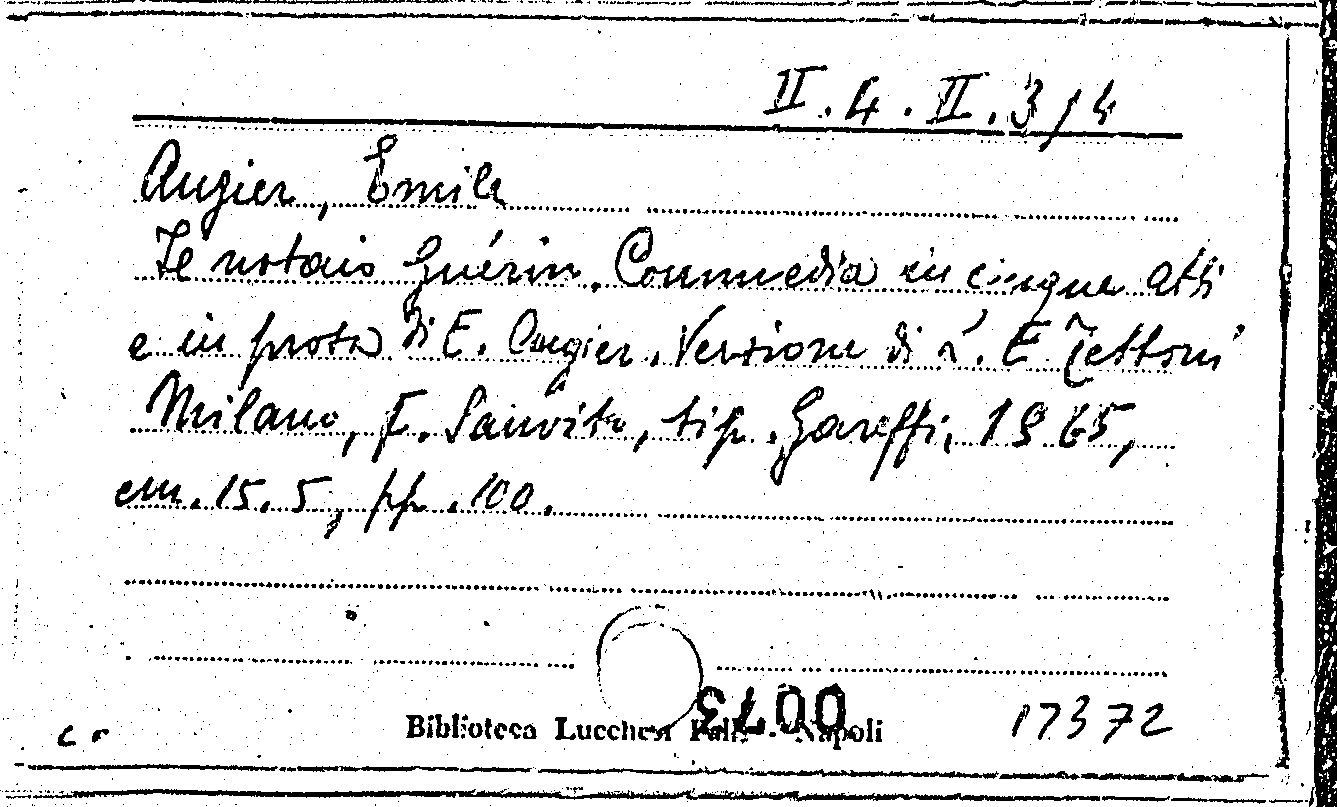 II.4.II.3/4
Augier, Emile
Il notaio Guérin. Commedia in cinque atti
e in prosa di E. Augier. Versione di L. E. Tettoni
Milano, F. Sanvito, tip. Gareffi, 1965,
cm. 15.5, pp. 100.
Biblioteca Lucchesi Palli - Napoli
17372